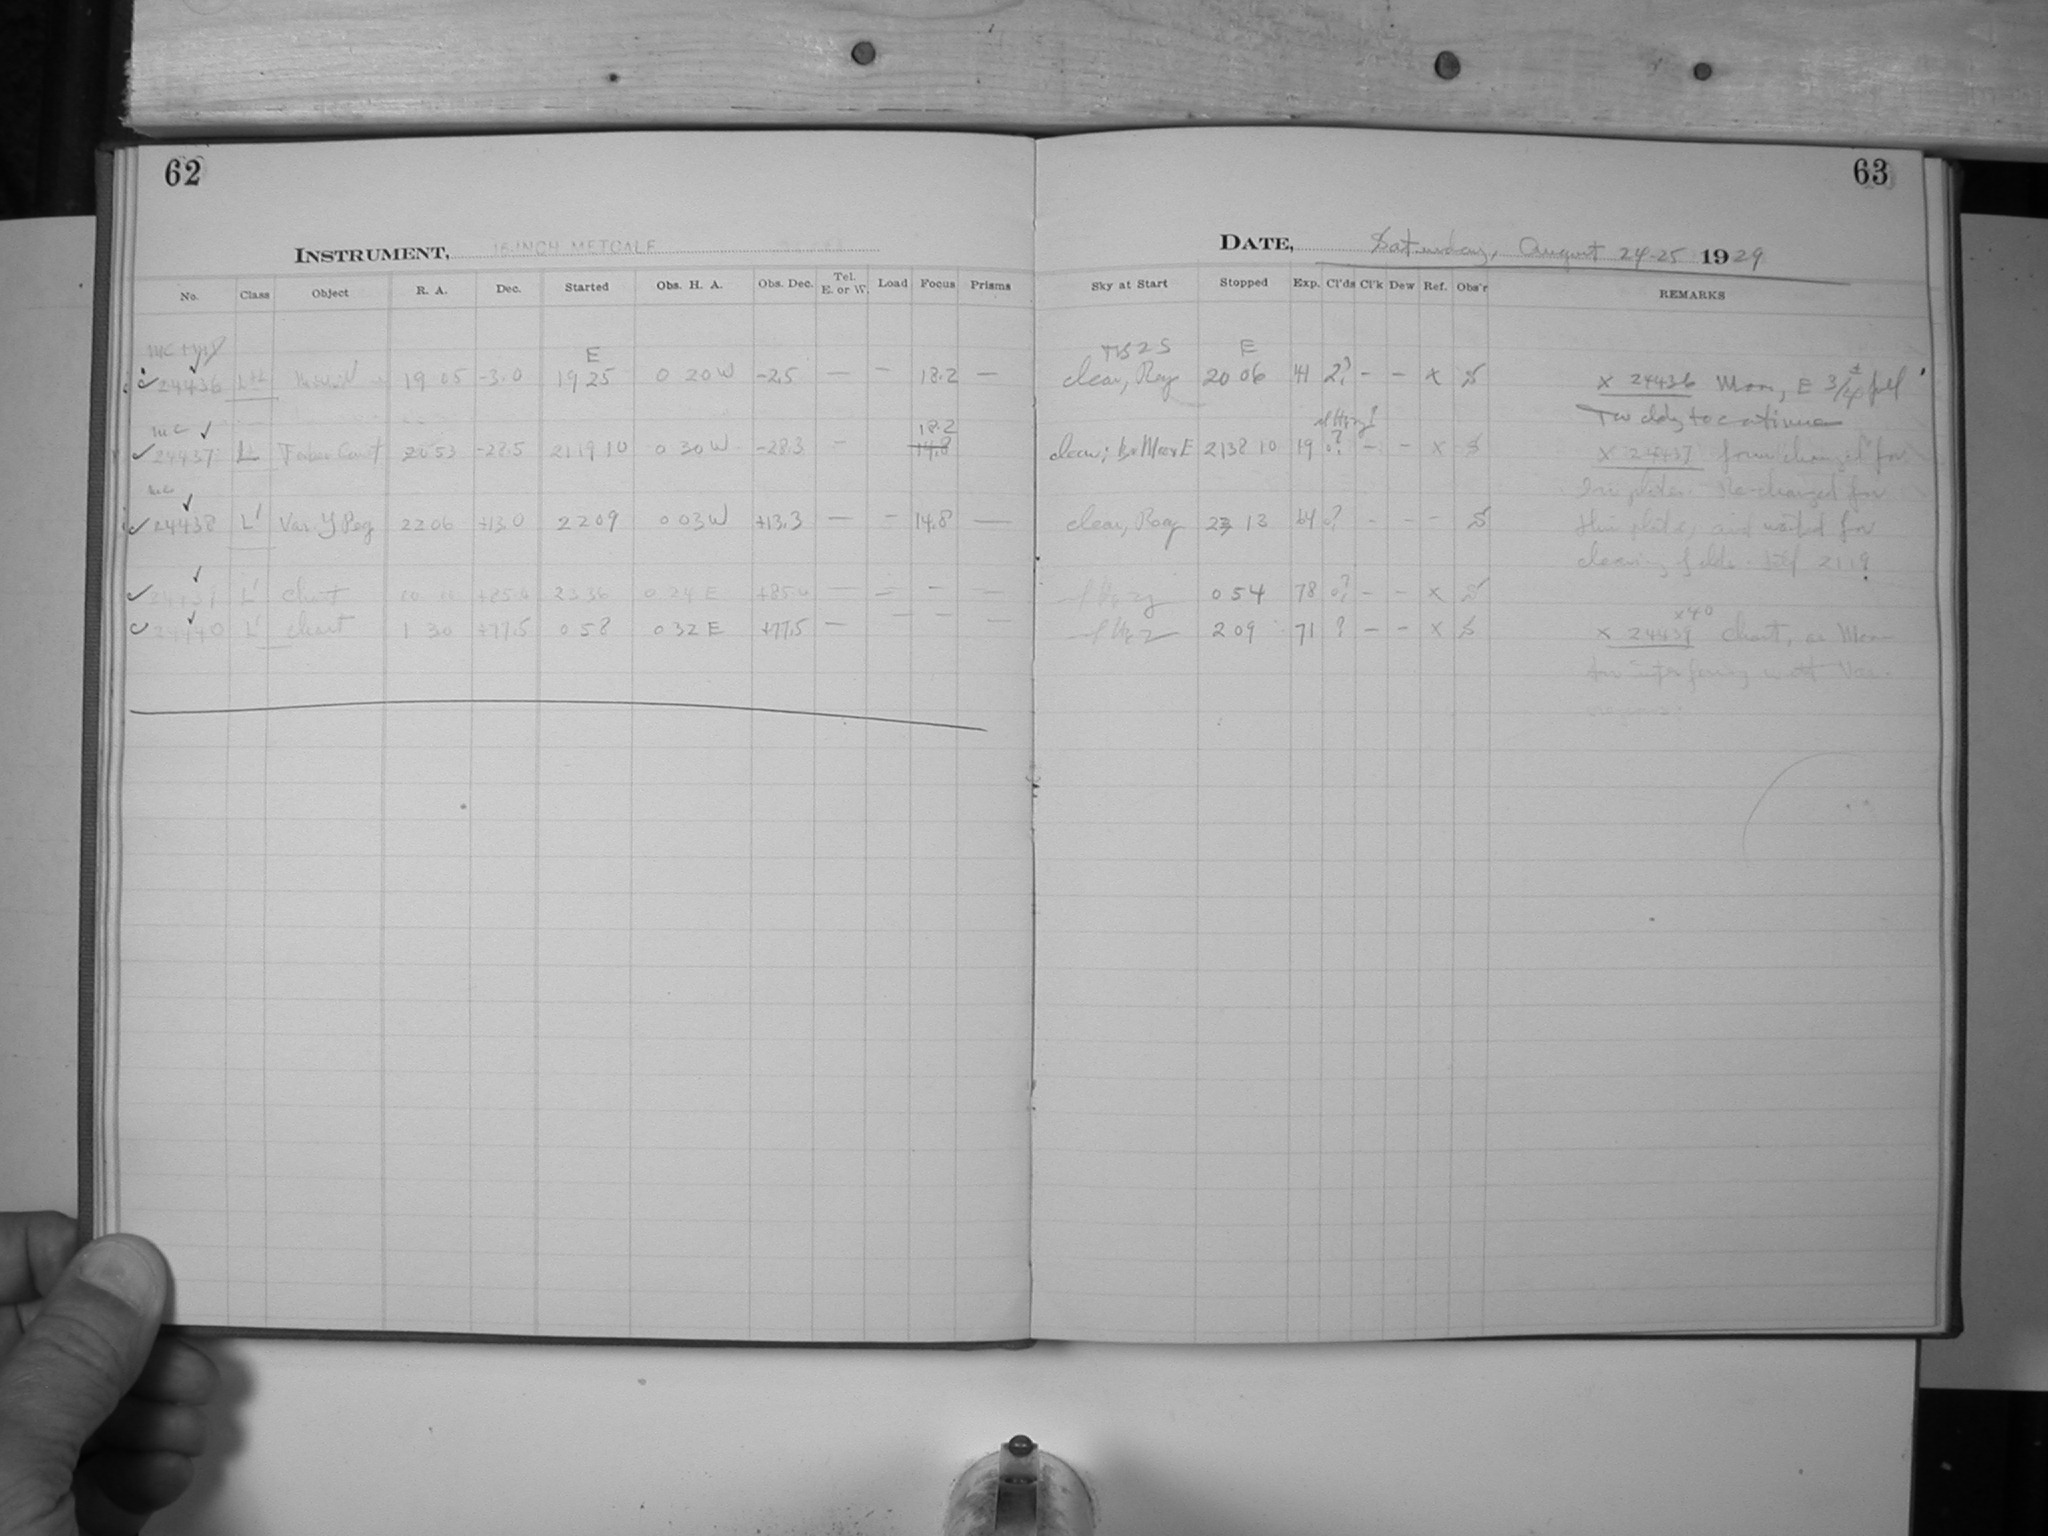 62
63
INSTRUMENT, 16-INCH METCALF
DATE, Saturday, August 24-25 1929
No. Class Object R. A. Dec. Started Obs. H. A. Obs. Dec. Tel. E. or W. Load Focus Prisms Sky at Start Stopped Exp. Cl'ds Cl'k Dew Ref. Obs'r REMARKS
MC E E
24436 19 05 -3.0 19 25 0 20 W -2.5 — – 18.2 — clear, 20 06 41 2? – – x S x 24436 Moon, E 3/4± full
MC 18.2
24437 L 20 53 -28.5 21 19 10 0 30 W -28.3 – – 14.8 clear; Moon E 21 38 10 19 0? – – x S x 24437 changed for
plates. Re-changed for
24438 L' Var. Y Peg 22 06 +13.0 22 09 0 03 W +13.3 — – 14.8 — clear, 23 13 64 0? – – – S this plate, and waited for
clearing till 21 19
24439 L' Chart +85.0 23 36 0 24 E +85.0 — – – — 0 54 78 0? – – x S
x40
24440 L' Chart 1 30 +77.5 0 58 0 32 E +77.5 — – – — 2 09 71 ? – – x S x 24439 Chart, as Moon
interfering with Var.
regions.